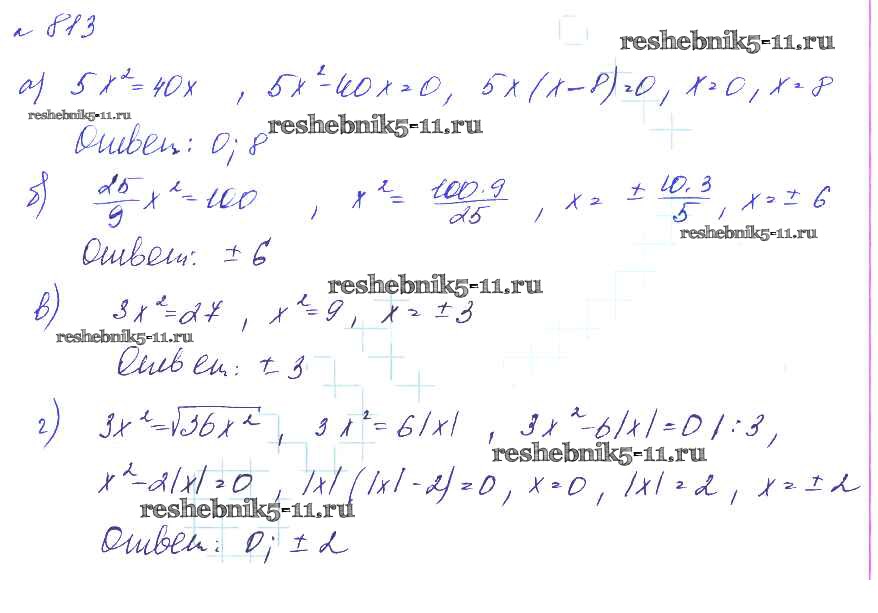 № 813
reshebnik5-11.ru
а) 5x²=40x , 5x²-40x=0, 5x(x-8)=0, x=0, x=8
reshebnik5-11.ru
Ответ: 0; 8 reshebnik5-11.ru
б) 25/9 x²=100 , x²= 100·9/25 , x= ± 10·3/5 , x=± 6
reshebnik5-11.ru
Ответ: ± 6
reshebnik5-11.ru
в) 3x²=27 , x²=9, x= ±3
reshebnik5-11.ru
Ответ: ± 3
г) 3x²=√36x² , 3x²=6|x| , 3x²-6|x|=0 | :3,
reshebnik5-11.ru
x²-2|x|=0 , |x|(|x|-2)=0, x=0, |x|=2, x=±2
reshebnik5-11.ru
Ответ: 0; ±2